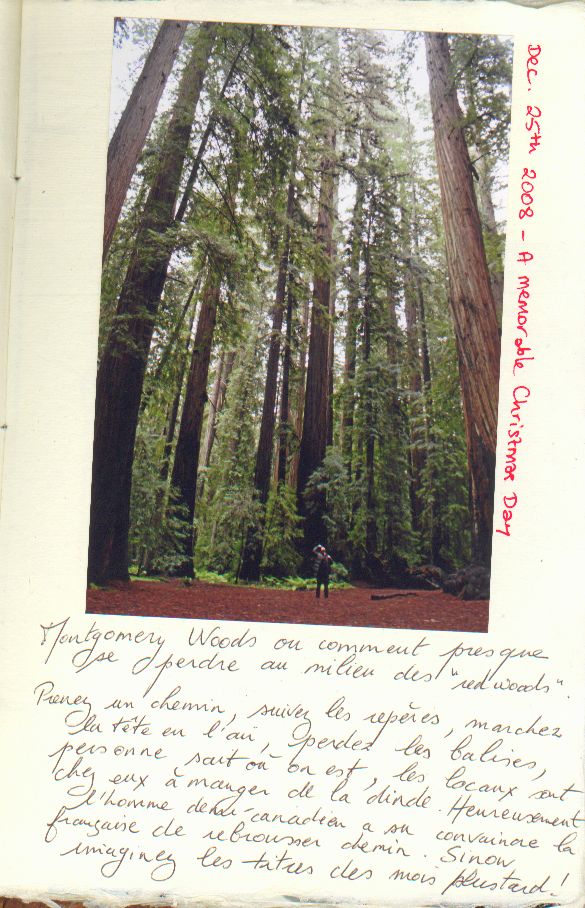 Dec. 25th 2008 - A memorable Christmas Day
Montgomery Woods ou comment presque
se perdre au milieu des "red woods".
Prenez un chemin, suivez les repères, marchez
la tête en l'air, perdez les balises,
personne sait où on est, les locaux sont
chez eux à manger de la dinde. Heureusement
l'homme demi-canadien a su convaincre la
française de rebrousser chemin. Sinon
imaginez les titres des mois plustard!